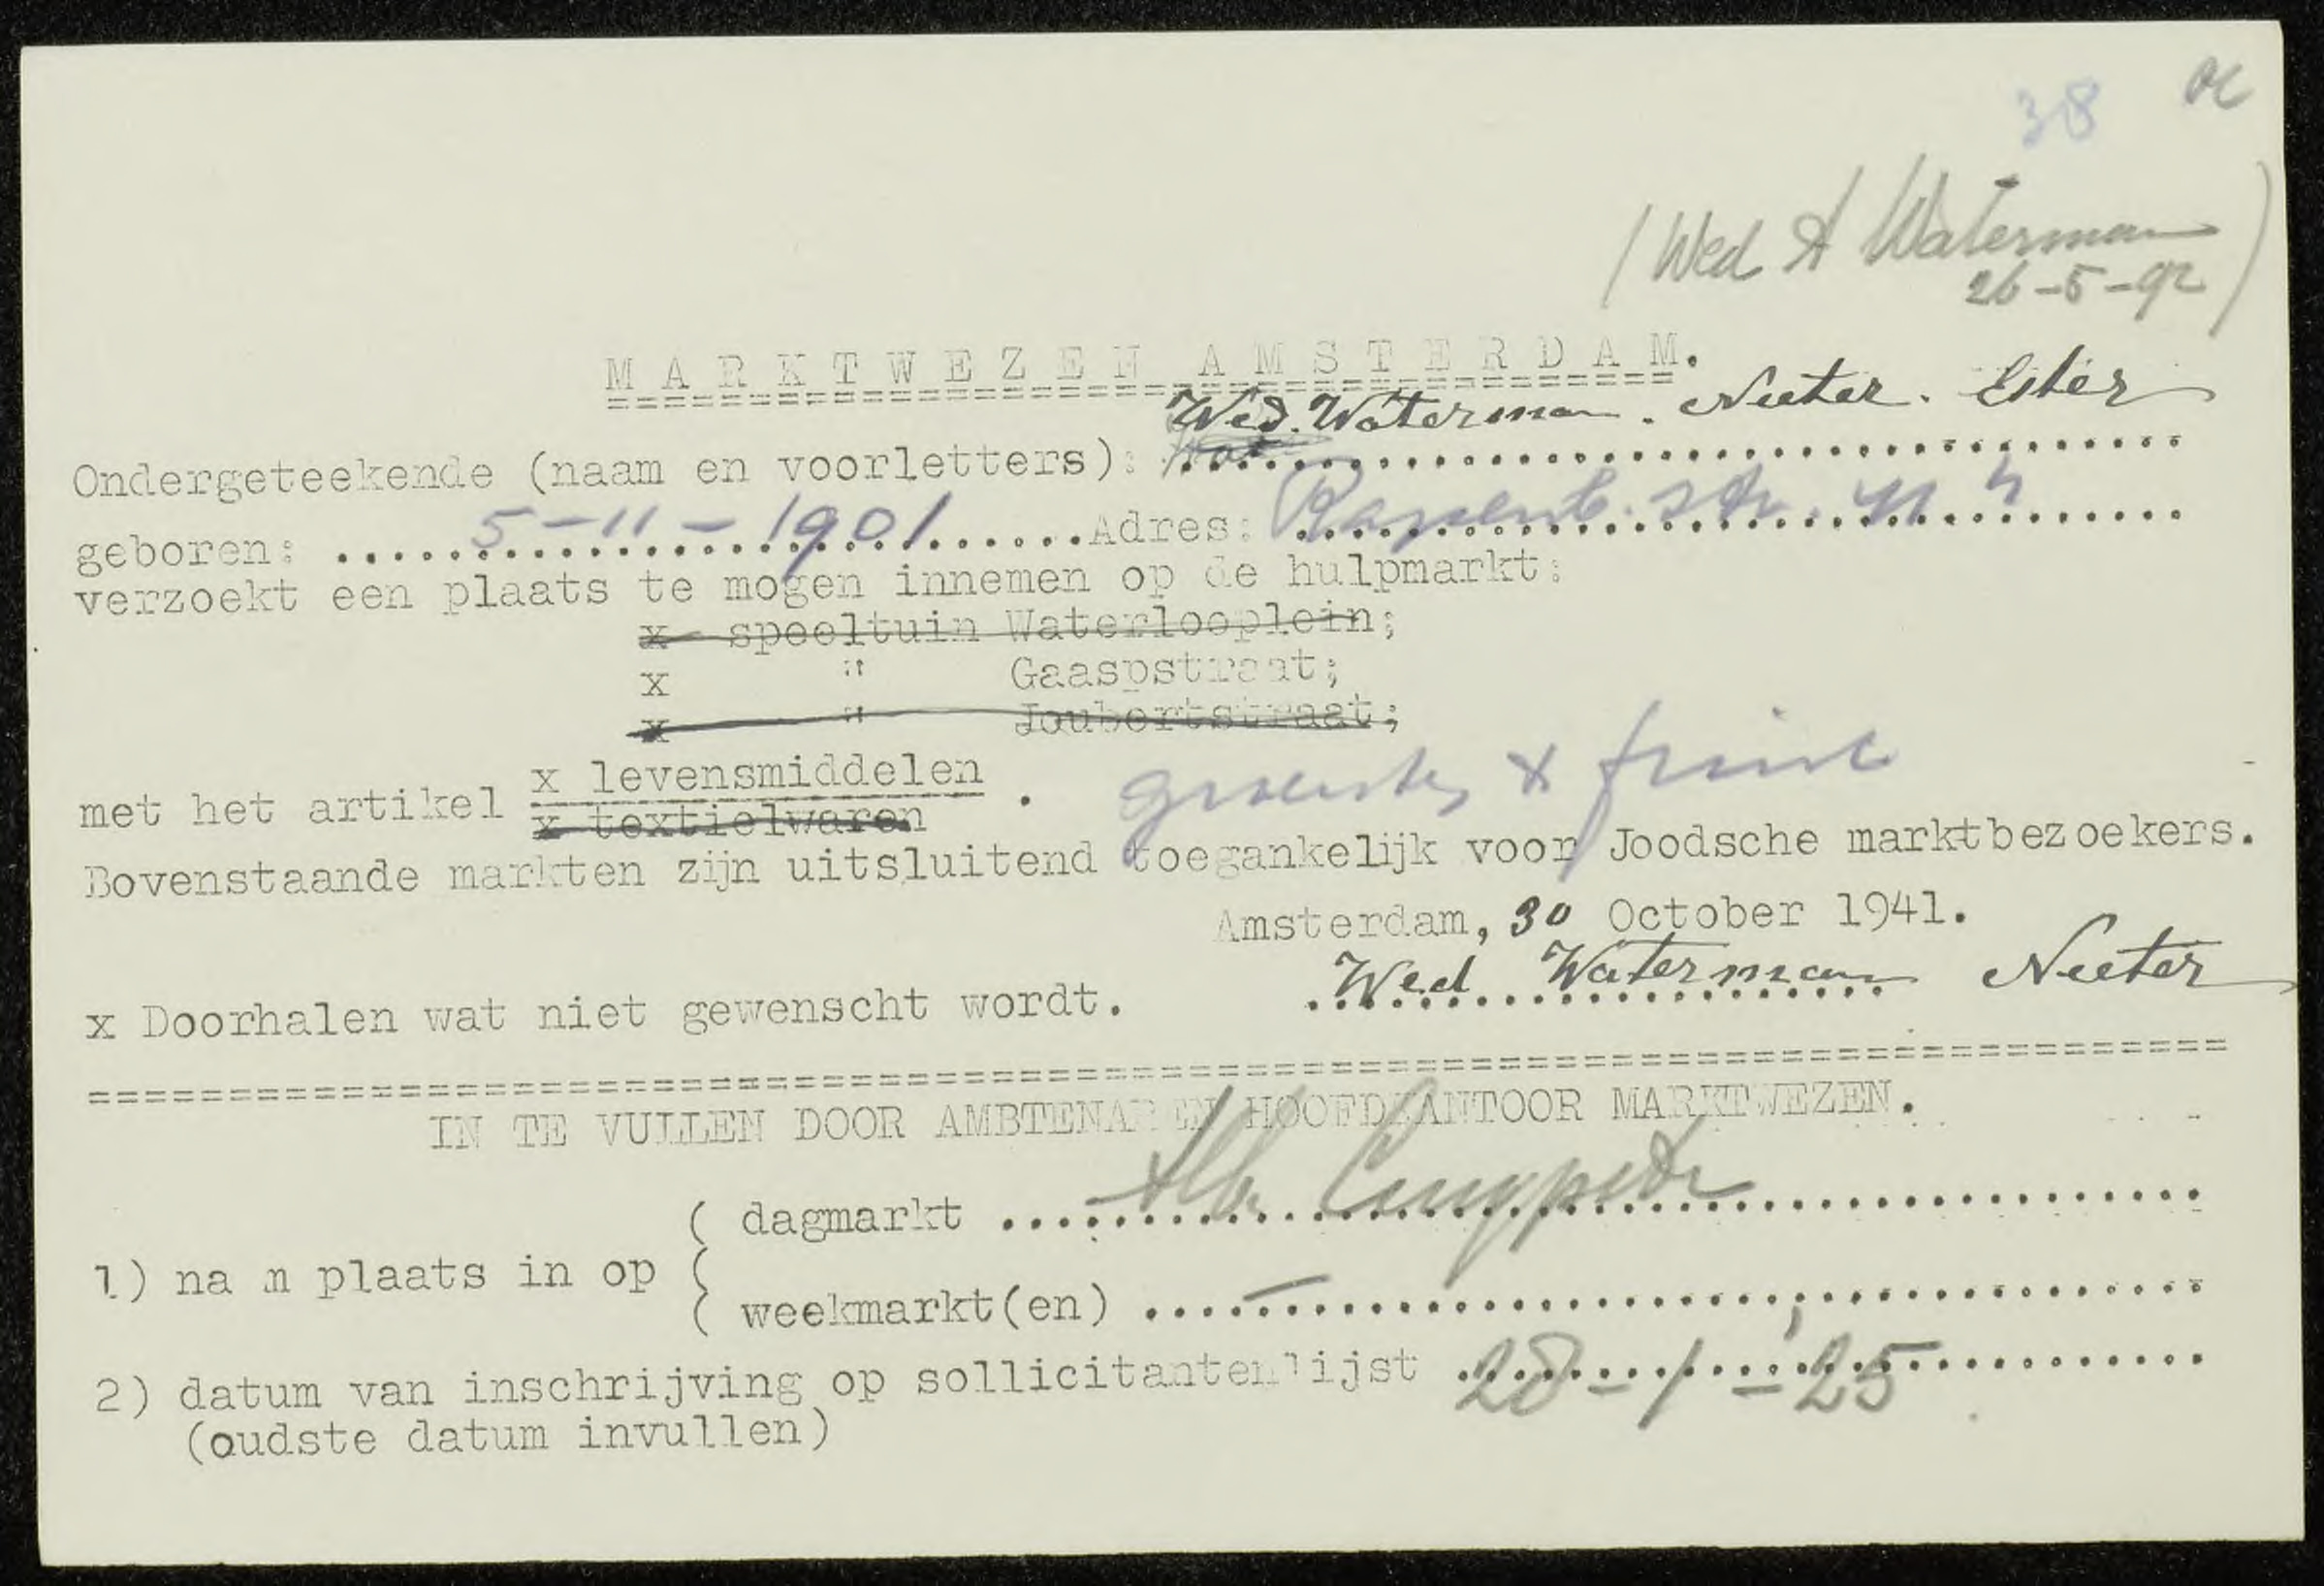 38
(Wed A Waterman
26-5-92)
MARKTWEZEN AMSTERDAM.
Wed. Waterman. Neeter. Ester
Ondergeteekende (naam en voorletters):
geboren: 5-11-1901 Adres: Rapenb. str. h
verzoekt een plaats te mogen innemen op de hulpmarkt:
x speeltuin Waterlooplein;
x " Gaaspstraat;
x " Joubertstraat;
x levensmiddelen
met het artikel . groenten & fruit
x textielwaren
Bovenstaande markten zijn uitsluitend toegankelijk voor Joodsche marktbezoekers.
Amsterdam, 30 October 1941.
Wed Waterman Neeter
x Doorhalen wat niet gewenscht wordt.
IN TE VULLEN DOOR AMBTENAREN HOOFDKANTOOR MARKTWEZEN.
( dagmarkt Alb. Cuypstr
1) na m plaats in op (
( weekmarkt(en) —
2) datum van inschrijving op sollicitantenlijst 28-1-25
(oudste datum invullen)